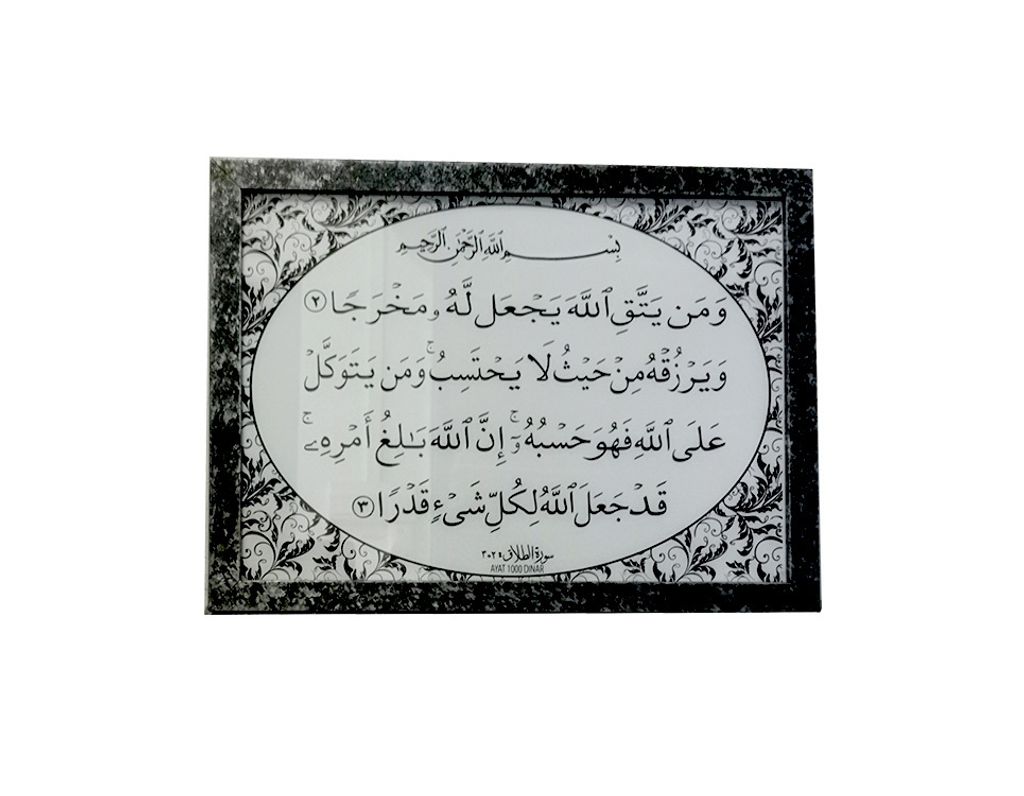 بِسْمِ ٱللَّهِ ٱلرَّحْمَٰنِ ٱلرَّحِيمِ
وَمَن يَتَّقِ ٱللَّهَ يَجْعَل لَّهُۥ مَخْرَجًا ٢
وَيَرْزُقْهُ مِنْ حَيْثُ لَا يَحْتَسِبُ ۚ وَمَن يَتَوَكَّلْ
عَلَى ٱللَّهِ فَهُوَ حَسْبُهُۥٓ ۚ إِنَّ ٱللَّهَ بَـٰلِغُ أَمْرِهِۦ ۚ
قَدْ جَعَلَ ٱللَّهُ لِكُلِّ شَىْءٍ قَدْرًا ٣
سورة الطلاق
AYAT 1000 DINAR